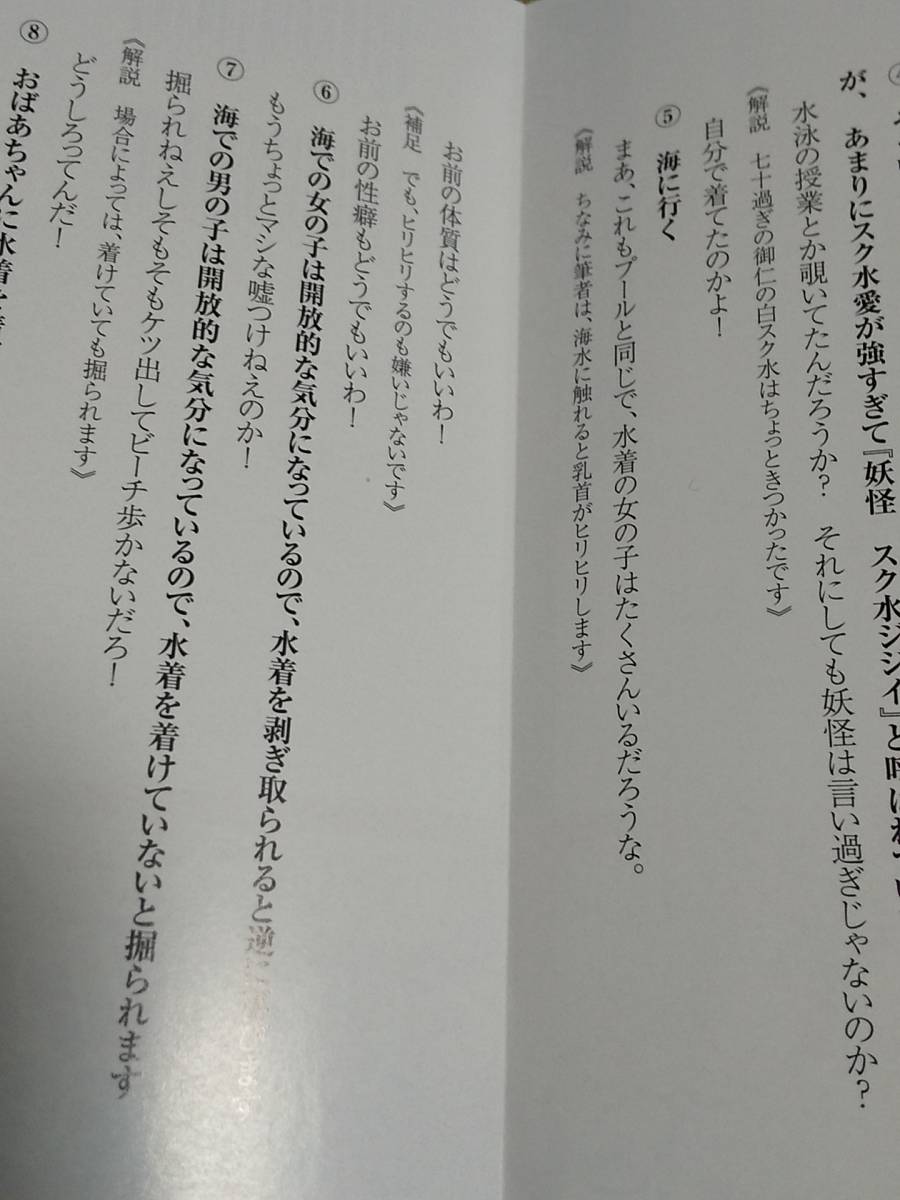 が、あまりにスク水愛が強すぎて『妖怪　スク水ジジイ』と呼ばれ
水泳の授業とか覗いてたんだろうか?　それにしても妖怪は言い過ぎじゃないのか?
《解説　七十過ぎの御仁の白スク水はちょっときつかったです》
自分で着てたのかよ!
⑤　海に行く
まあ、これもプールと同じで、水着の女の子はたくさんいるだろうな。
《解説　ちなみに筆者は、海水に触れると乳首がヒリヒリします》
お前の体質はどうでもいいわ!
《補足　でも、ヒリヒリするのも嫌いじゃないです》
お前の性癖もどうでもいいわ!
⑥　海での女の子は開放的な気分になっているので、水着を剥ぎ取られると逆に
もうちょっとマシな嘘つけねえのか!
⑦　海での男の子は開放的な気分になっているので、水着を着けていないと掘られます
掘られねえしそもそもケツ出してビーチ歩かないだろ!
《解説　場合によっては、着けていても掘られます》
どうしろってんだ!
⑧　おばあちゃんに水着を